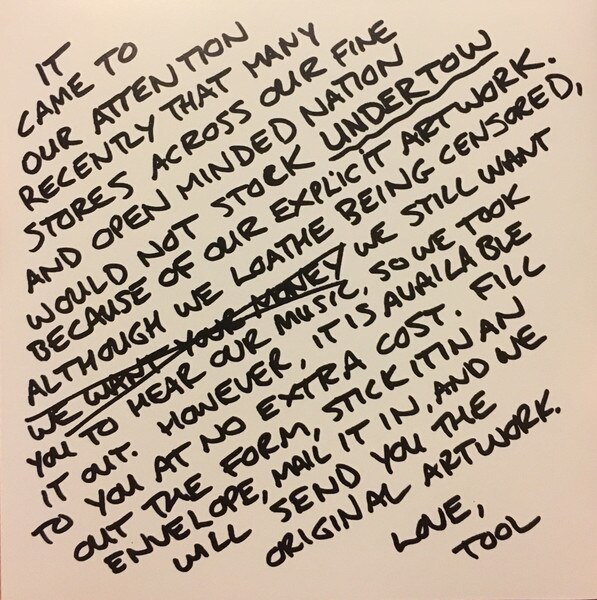 IT
CAME TO
OUR ATTENTION
RECENTLY THAT MANY
STORES ACROSS OUR FINE
AND OPEN MINDED NATION
WOULD NOT STOCK UNDERTOW
BECAUSE OF OUR EXPLICIT ARTWORK.
ALTHOUGH WE LOATHE BEING CENSORED,
WE WANT YOUR MONEY WE STILL WANT
YOU TO HEAR OUR MUSIC, SO WE TOOK
IT OUT. HOWEVER, IT IS AVAILABLE
TO YOU AT NO EXTRA COST. FILL
OUT THE FORM, STICK IT IN AN
ENVELOPE, MAIL IT IN, AND WE
WILL SEND YOU THE
ORIGINAL ARTWORK.
LOVE,
TOOL